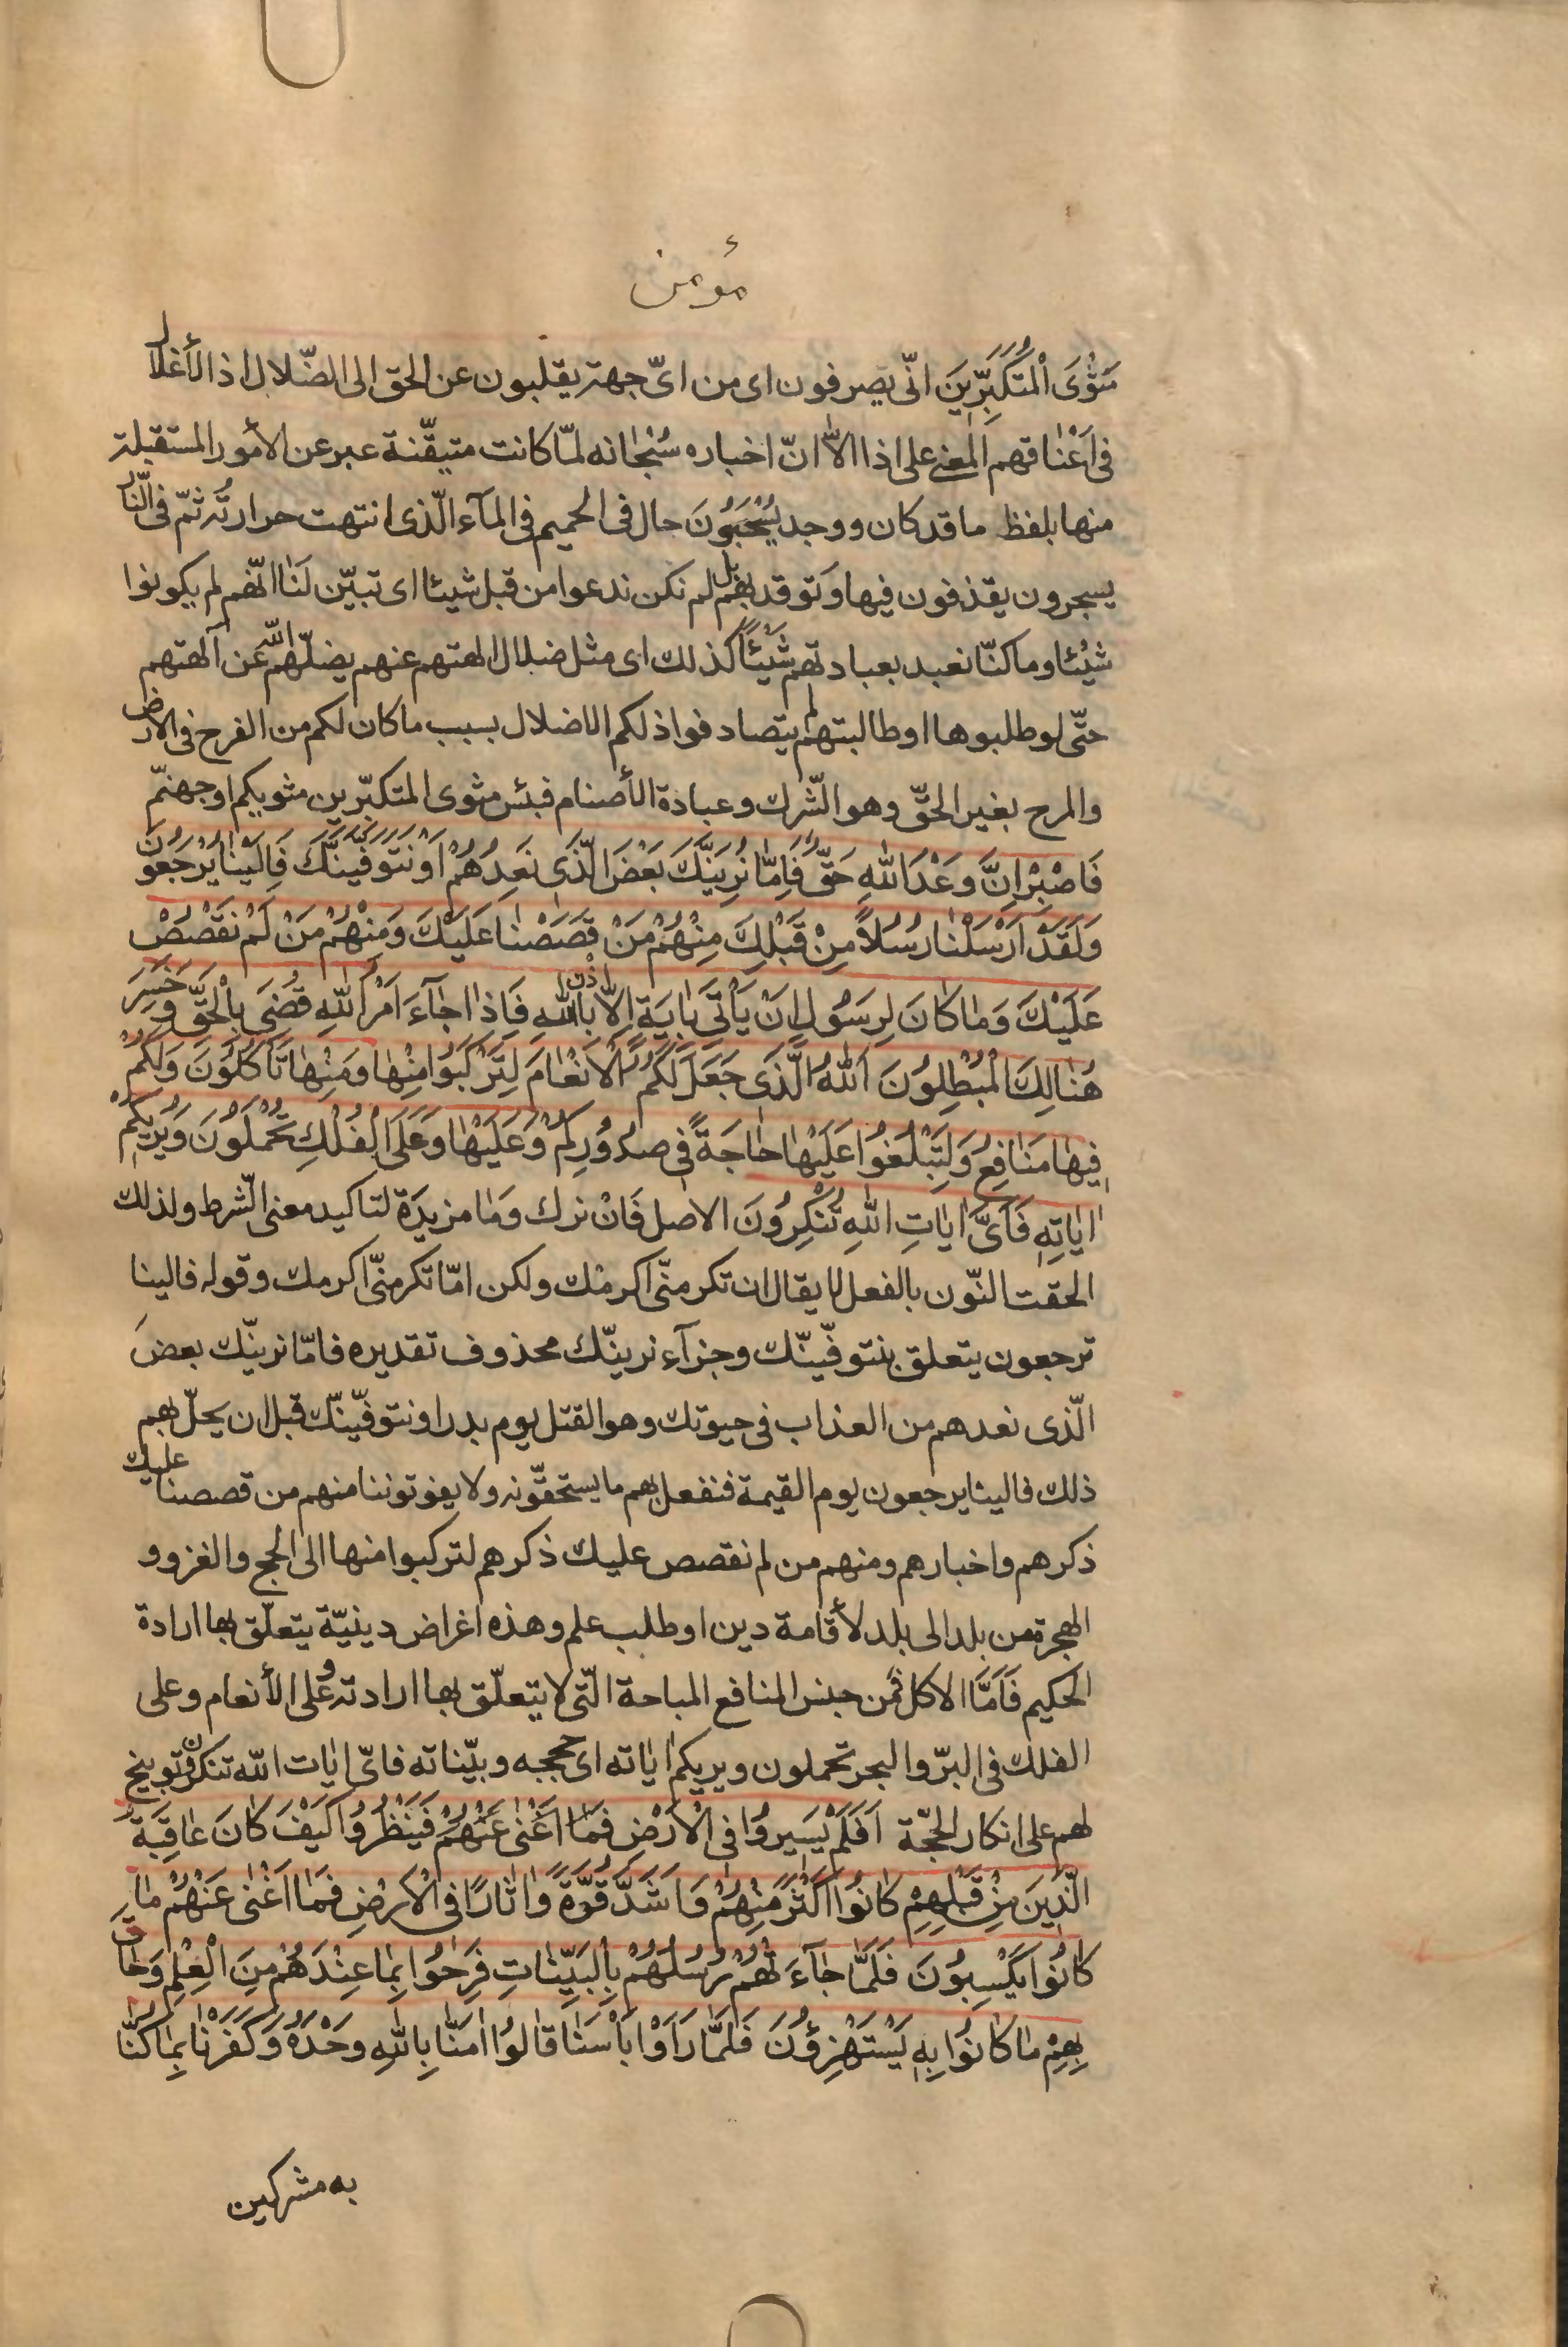 مؤمن
مَثْوَى الْمُتَكَبِّرِينَ انّى يصرفون اى من اىّ جهة يقلبون عن الحق الى الضّلال اذ الأغلال
فى اَعْناقهم المعنى على اذا الا انّ اخباره سُبْحانه لمّا كانت متيقّنة عبر عن الأمور المستقبلة
منها بلفظ ما قد كان ووجد يُسْحَبُونَ حال فى الحميم فى المآء الّذى انتهت حرارتُه ثمّ فى النّار
يسجرون يقذفون فيها وتوقد بهم بل لم نكن ندعوا من قبل شيئا اى تبيّن لَنا انّهم لم يكونوا
شيْئا وما كنّا نعبد بعبادتهم شَيْئًا كذلك اى مثل ضلال الهتهم عنهم يضلّهم الله عن آلهتهم
حتّى لو طلبوها او طالبتهم لم يتصادفوا ذلكم الاضلال بسبب ما كان لكم من الفرح فى الارض
والمرح بغير الحقّ وهو الشّرك وعبادة الأصنام فبئس مثوى المتكبّرين مثويكم او جهنّم
فَاصْبِرْ اِنَّ وَعْدَ اللهِ حَقٌّ فَاِمّا نُرِيَنَّكَ بَعْضَ الَّذى نَعِدُهُمْ اَوْ نَتَوَفَّيَنَّكَ فَاِلَيْنا يُرْجَعُونَ
وَلَقَدْ اَرْسَلْنا رُسُلاً مِنْ قَبْلِكَ مِنْهُمْ مَنْ قَصَصْنا عَلَيْكَ وَمِنْهُمْ مَنْ لَمْ نَقْصُصْ
عَلَيْكَ وَما كانَ لِرَسُولٍ اَنْ يَأْتِىَ بِايَةٍ اِلاّ بِاِذْنِ اللهِ فَاِذا جآءَ اَمْرُ اللهِ قُضِىَ بِالْحَقِّ وَخَسِرَ
هُنالِكَ الْمُبْطِلُونَ اَللهُ الَّذى جَعَلَ لَكُمُ الْاَنْعامَ لِتَرْكَبُوا مِنْها وَمِنْها تَأْكُلُونَ وَلَكُمْ
فيها مَنافِعُ وَلِتَبْلُغُوا عَلَيْها حاجَةً فى صُدُورِكُمْ وَعَلَيْها وَعَلَى الْفُلْكِ تُحْمَلُونَ وَيُريكُمْ
اياتِهِ فَاَىَّ اياتِ اللهِ تُنْكِرُونَ الاصل فَاِنْ نرك وَما مزيدَة لتاكيد معنى الشّرط ولذلك
الحقت النّون بالفعل لا يقال ان تكرمنّى اكرمْك ولكن امّا تكرمنّى اكرمك وقوله فالينا
ترجعون يتعلق بنتوفّينّك وجزآء نرينّك محذوف تقديره فامّا نرينّك بعضَ
الّذى نعدهم من العذاب فى حيوتك وهو القتل يوم بدر او نتوفّينّك قبل ان يحلّ بهم
ذلك فالينا يرجعون يوم القيمة فنفعل بهم ما يستحقّونه ولا يفوتوننا منهم من قصصنا عليك
ذكرهم واخبارهم ومنهم من لم نقصص عليك ذكرهم لتركبوا منها الى الحج والغزو و
الهجرة من بلد الى بلد لأقامة دين او طلب علم وهذه اغراض دينيّة يتعلّق بها ارادة
الحكيم فَاَمَّا الاكل فمن جنس المنافع المباحة الّتى لا يتعلّق بها ارادته وعلى الأنعام وعلى
الفلك فى البرّ والبحر تحملون ويريكم اياته اى حججه وبيّناته فاىّ ايات الله تنكرون توبيخ
لهم على انكار الحجّة اَفَلَمْ يَسيرُوا فِى الْاَرْضِ فَما اَغْنى عَنْهُمْ فَيَنْظُرُوا كَيْفَ كانَ عاقِبَةُ
الَّذينَ مِنْ قَبْلِهِمْ كانُوا اَكْثَرَ مِنْهُمْ وَاَشَدَّ قُوَّةً وَاثارًا فِى الْاَرْضِ فَما اَغْنى عَنْهُمْ ما
كانُوا يَكْسِبُونَ فَلَمّا جآءَتْهُمْ رُسُلُهُمْ بِالْبَيِّناتِ فَرِحُوا بِما عِنْدَهُمْ مِنَ الْعِلْمِ وَحاقَ
بِهِمْ ما كانُوا بِهِ يَسْتَهْزِؤُنَ فَلَمّا رَاَوْا بَأْسَنا قالُوا امَنّا بِاللهِ وَحْدَهُ وَكَفَرْنا بِما كُنّا
به مشركين